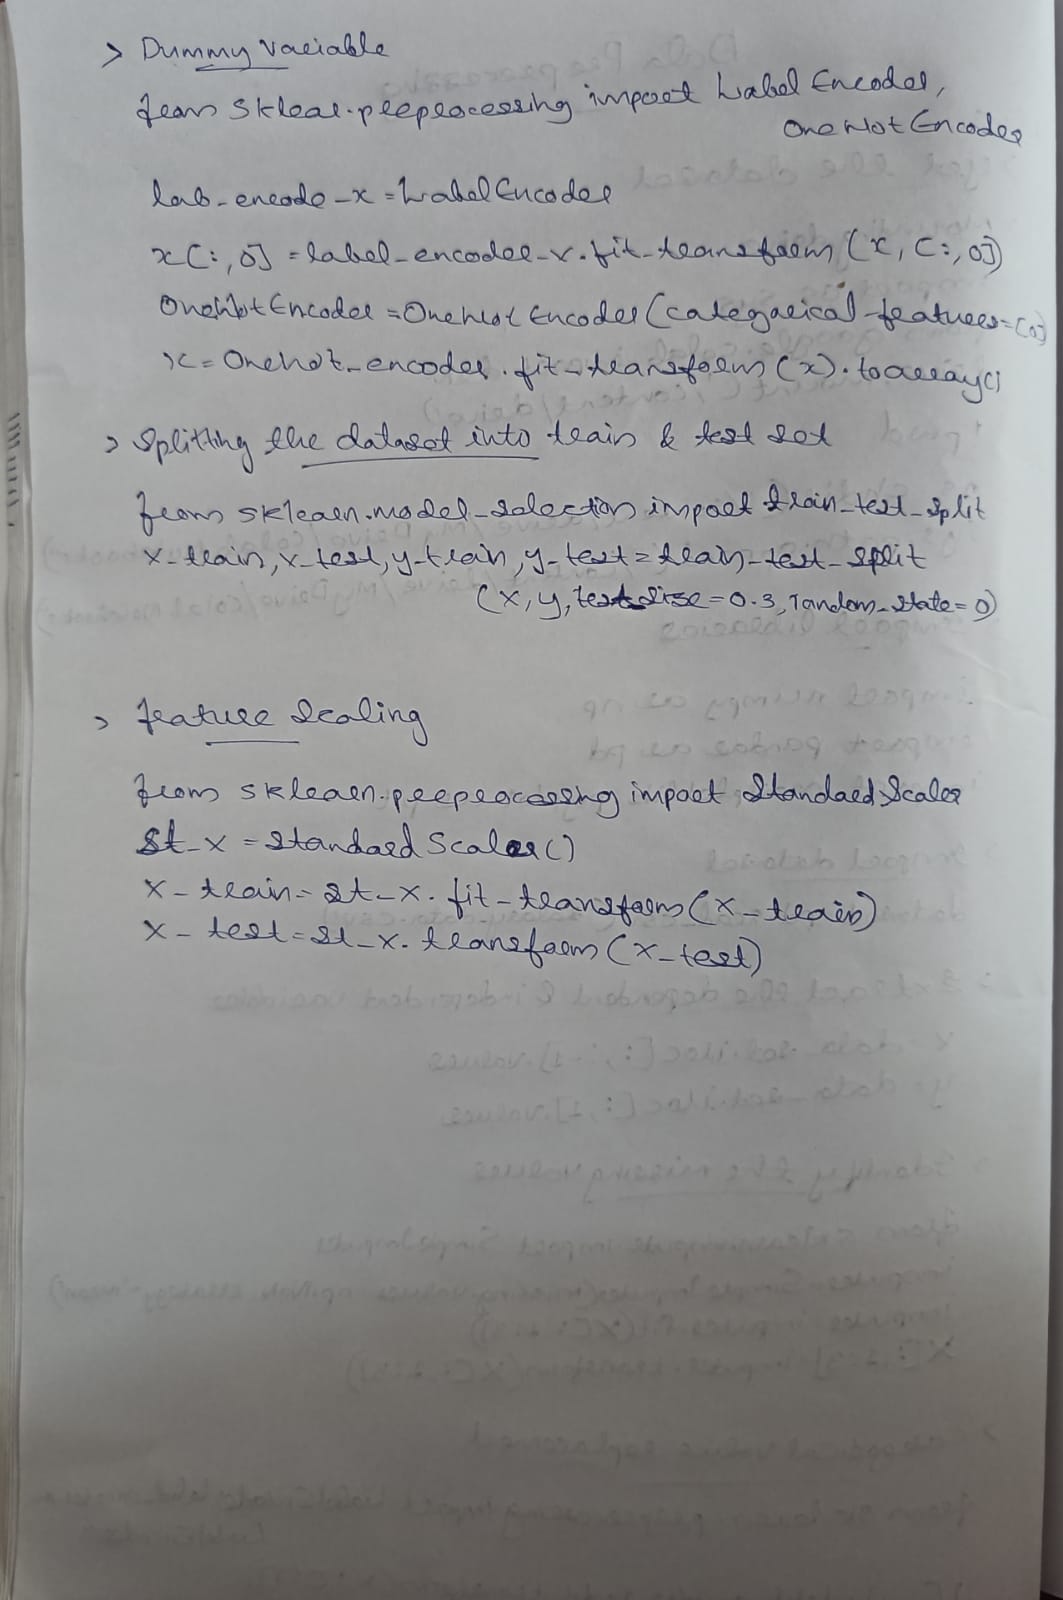 > Dummy Variable
from sklear.preprocessing import Label Encoder,
OneHotEncoder
lab-encode-x = LabelEncoder
x[:,0] = label-encoder-x.fit-transform(x,[:,0])
OneHotEncoder = OneHotEncoder(categorical-features=[0])
x = Onehot-encoder.fit-transform(x).toarray()
> Splitting the dataset into train & test set
from sklearn.model_selection import train_test_split
x-train, x-test, y-train, y-test = train-test-split
(x, y, test size = 0.3, random_state = 0)
> Feature Scaling
from sklearn.preprocessing import StandardScaler
st-x = Standard Scaler()
x-train = st-x.fit-transform(x-train)
x-test = st-x.transform(x-test)